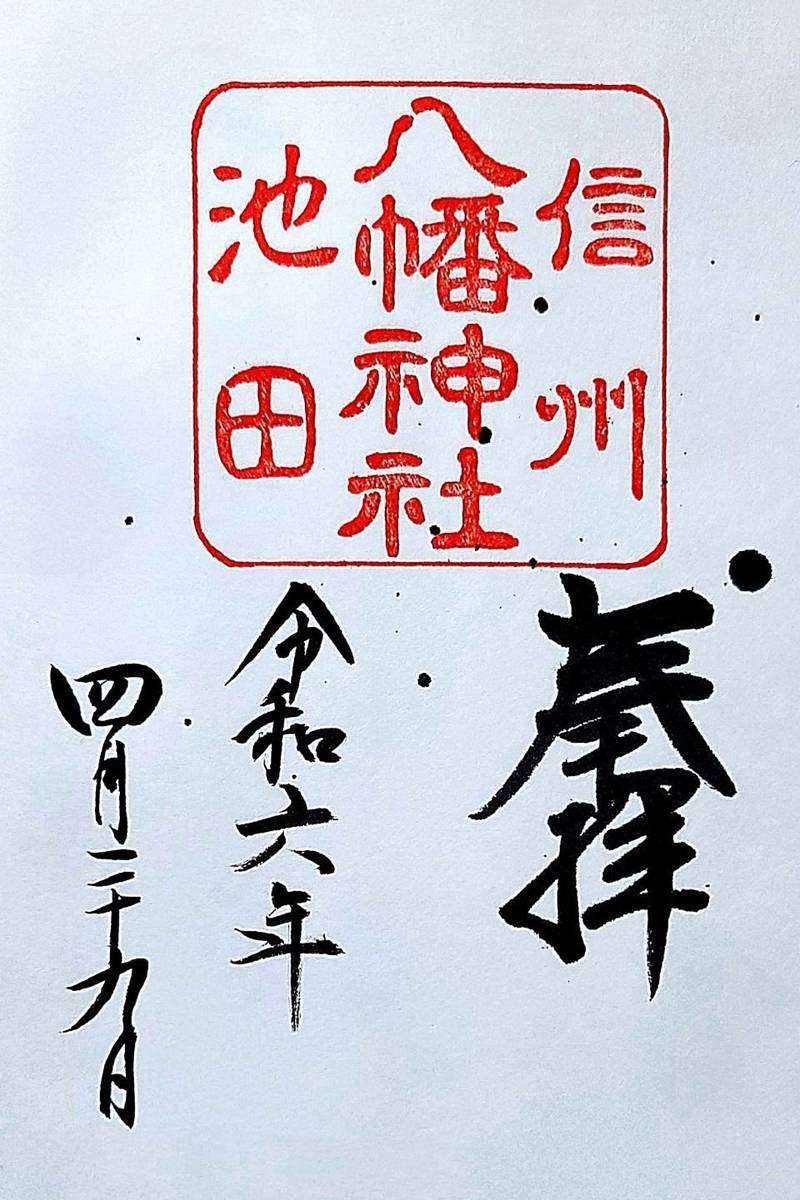 信州
八幡神社
池田
奉拝
令和六年
四月二十九日